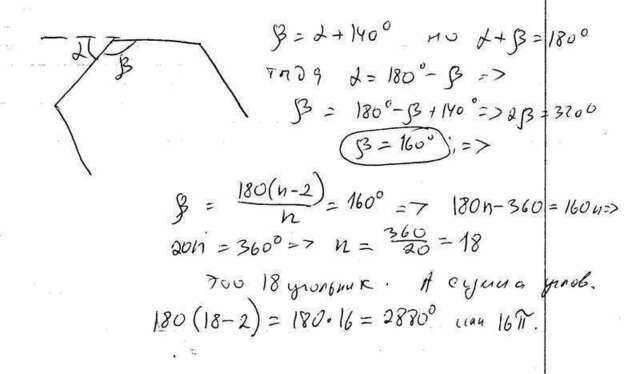 α β
β = α + 140° но α + β = 180°
тогда α = 180° - β =>
β = 180° - β + 140° => 2β = 320°
β = 160° ; =>
β = 180(n-2)/n = 160° => 180n - 360 = 160n =>
20n = 360° => n = 360/20 = 18
это 18 угольник. А сумма углов.
180(18-2) = 180·16 = 2880° или 16π.